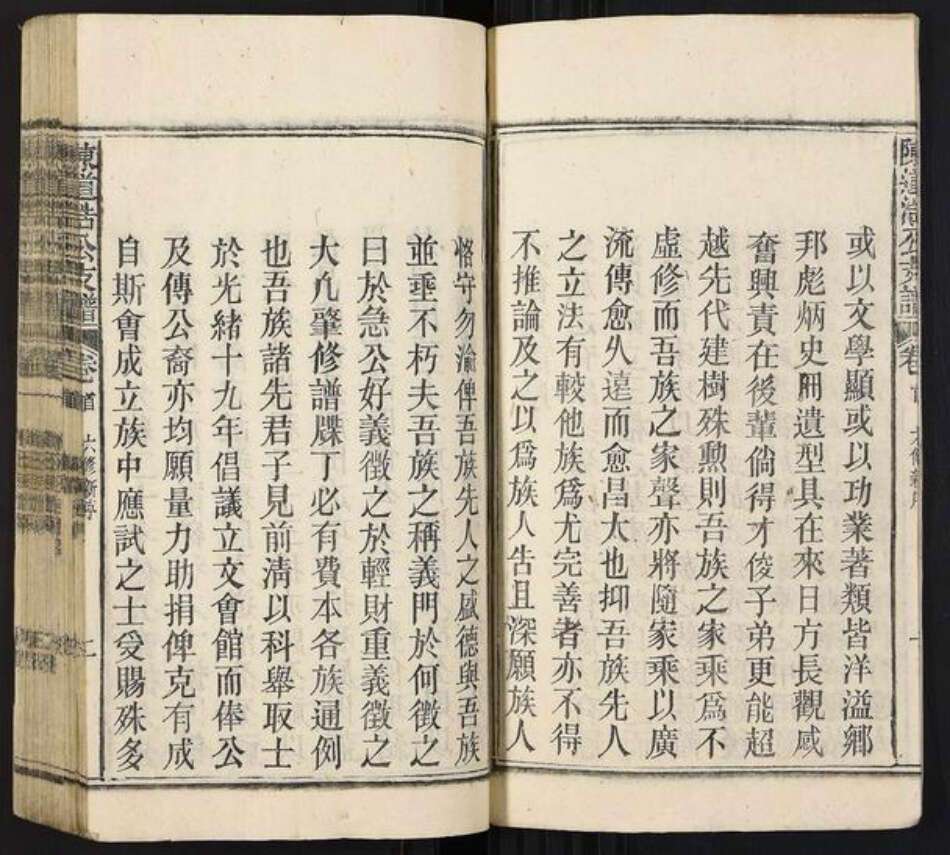 或以文學顯或以功業著類皆洋溢鄉
邦彪炳史冊遺型具在來日方長觀感
奮興責在後輩倘得才俊子弟更能超
越先代建樹殊勲則吾族之家乘爲不
虛修而吾族之家聲亦將隨家乘以廣
流傳愈久遠而愈昌大也抑吾族先人
之立法有較他族爲尤完善者亦不得
不推論及之以爲族人告且深願族人
恪守勿渝俾吾族先人之盛德與吾族
並垂不朽夫吾族之稱義門於何徵之
曰於急公好義徵之於輕財重義徵之
大凡肇修譜牒丁必有費本各族通例
也吾族諸先君子見前淸以科舉取士
於光緒十九年倡議立文會館而俸公
及傳公裔亦均願量力助捐俾克有成
自斯會成立族中應試之士受賜殊多
陳道浩公支譜 卷首 六修新序 七